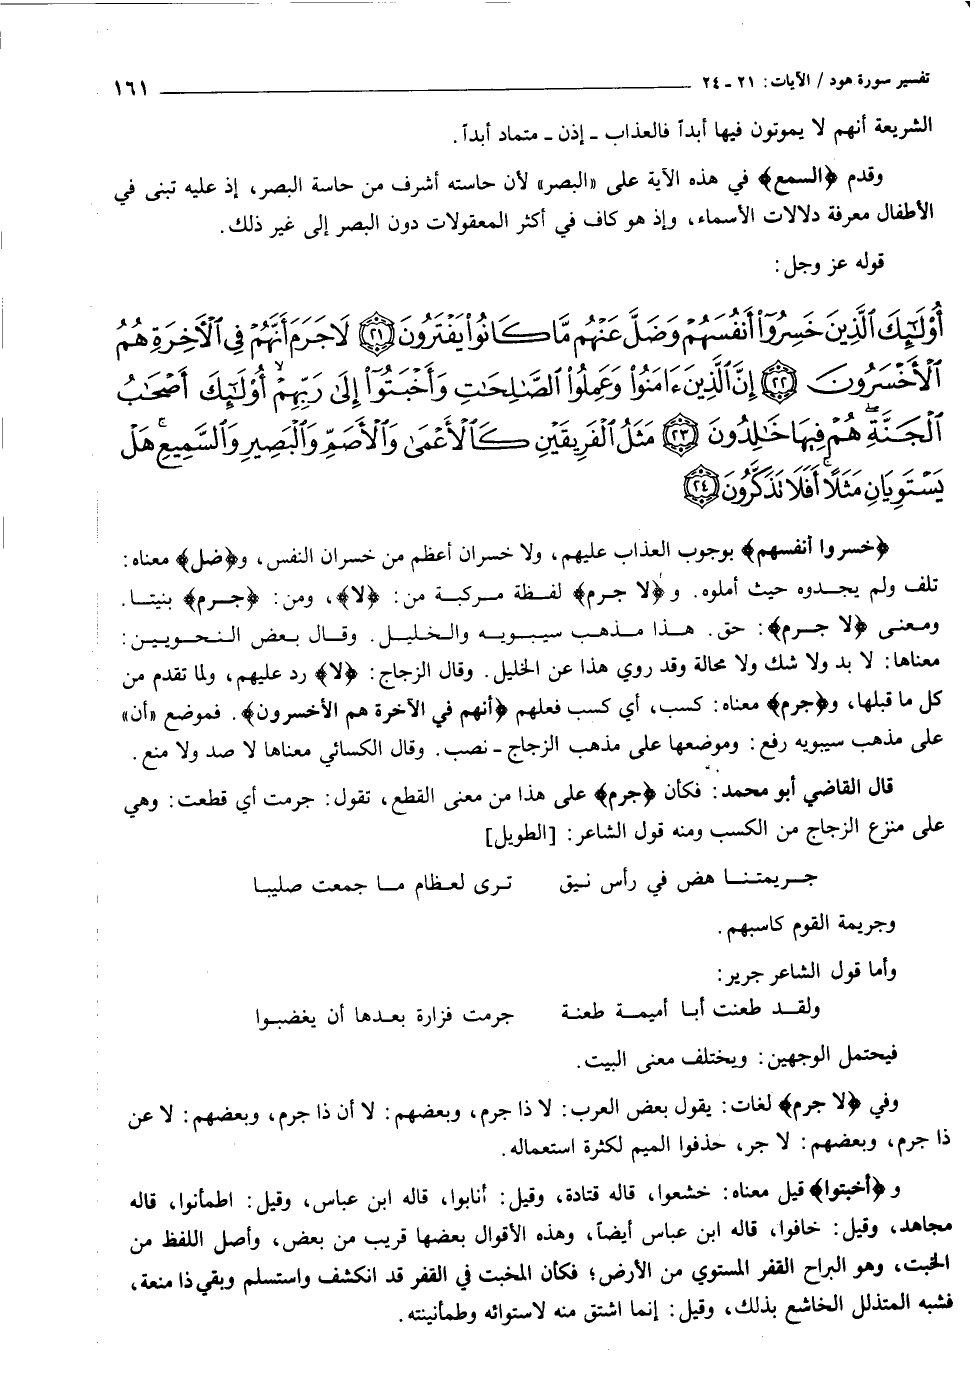 تفسير سورة هود / الآيات: ٢١ - ٢٤ ١٦١
الشريعة أنهم لا يموتون فيها أبداً فالعذاب - إذن - متماد أبداً.
وقدم ﴿السمع﴾ في هذه الآية على «البصر» لأن حاسته أشرف من حاسة البصر، إذ عليه تبنى في
الأطفال معرفة دلالات الأسماء، وإذ هو كاف في أكثر المعقولات دون البصر إلى غير ذلك.
قوله عز وجل:
أُوْلَٰٓئِكَ ٱلَّذِينَ خَسِرُوٓاْ أَنفُسَهُمْ وَضَلَّ عَنْهُم مَّا كَانُواْ يَفْتَرُونَ ٢١ لَا جَرَمَ أَنَّهُمْ فِى ٱلْأَخِرَةِ هُمُ
ٱلْأَخْسَرُونَ ٢٢ إِنَّ ٱلَّذِينَ ءَامَنُواْ وَعَمِلُواْ ٱلصَّٰلِحَٰتِ وَأَخْبَتُوٓاْ إِلَىٰ رَبِّهِمْ أُوْلَٰٓئِكَ أَصْحَٰبُ
ٱلْجَنَّةِ هُمْ فِيهَا خَٰلِدُونَ ٢٣ مَثَلُ ٱلْفَرِيقَيْنِ كَٱلْأَعْمَىٰ وَٱلْأَصَمِّ وَٱلْبَصِيرِ وَٱلسَّمِيعِ هَلْ
يَسْتَوِيَانِ مَثَلًا أَفَلَا تَذَكَّرُونَ ٢٤
﴿خسروا أنفسهم﴾ بوجوب العذاب عليهم، ولا خسران أعظم من خسران النفس، و﴿ضل﴾ معناه:
تلف ولم يجدوه حيث أملوه. و ﴿لا جرم﴾ لفظة مركبة من: ﴿لا﴾، ومن: ﴿جرم﴾ بنيتا.
ومعنى ﴿لا جرم﴾: حق. هذا مذهب سيبويه والخليل. وقال بعض النحويين:
معناها: لا بد ولا شك ولا محالة وقد روي هذا عن الخليل. وقال الزجاج: ﴿لا﴾ رد عليهم، ولما تقدم من
كل ما قبلها، و﴿جرم﴾ معناه: كسب، أي كسب فعلهم ﴿أنهم في الآخرة هم الأخسرون﴾. فموضع «أن»
على مذهب سيبويه رفع: وموضعها على مذهب الزجاج - نصب. وقال الكسائي معناها لا صد ولا منع.
قال القاضي أبو محمد: فكأن ﴿جرم﴾ على هذا من معنى القطع، تقول: جرمت أي قطعت: وهي
على منزع الزجاج من الكسب ومنه قول الشاعر: [الطويل]
جريمتنا هض في رأس نيق ترى لعظام ما جمعت صليبا
وجريمة القوم كاسبهم.
وأما قول الشاعر جرير:
ولقد طعنت أبا أميمة طعنة جرمت فزارة بعدها أن يغضبوا
فيحتمل الوجهين: ويختلف معنى البيت.
وفي ﴿لا جرم﴾ لغات: يقول بعض العرب: لا ذا جرم، وبعضهم: لا أن ذا جرم، وبعضهم: لا عن
ذا جرم، وبعضهم: لا جر، حذفوا الميم لكثرة استعماله.
و ﴿أخبتوا﴾ قيل معناه: خشعوا، قاله قتادة، وقيل: أنابوا، قاله ابن عباس، وقيل: اطمأنوا، قاله
مجاهد، وقيل: خافوا، قاله ابن عباس أيضاً، وهذه الأقوال بعضها قريب من بعض، وأصل اللفظ من
الخبت، وهو البراح القفر المستوي من الأرض؛ فكأن المخبت في القفر قد انكشف واستسلم وبقي ذا منعة،
فشبه المتذلل الخاشع بذلك، وقيل: إنما اشتق منه لاستوائه وطمأنينته.